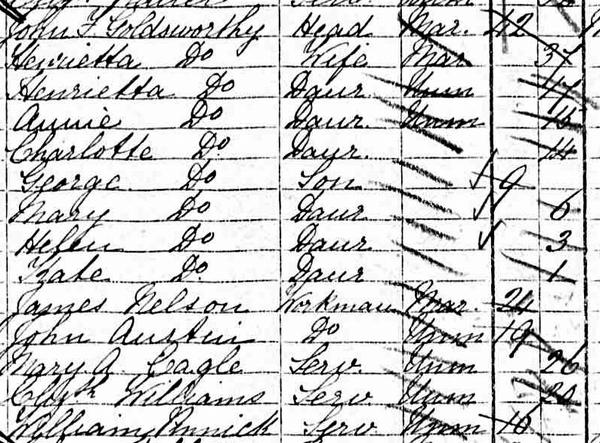 Serv Unm
John F. Goldsworthy Head Mar. 42
Henrietta Do Wife Mar 37
Henrietta Do Daur. Unm 17
Annie Do Daur. Unm 15
Charlotte Do Daur. 14
George Do Son 9
Mary Do Daur 6
Helen Do Daur 3
Kate Do. Daur 1
James Nelson Workman Mar. 24
John Austin Do Unm 19
Mary A. Cagle Serv. Unm 26
Williams Serv Unm 20
William Pinnick Serv Unm 16